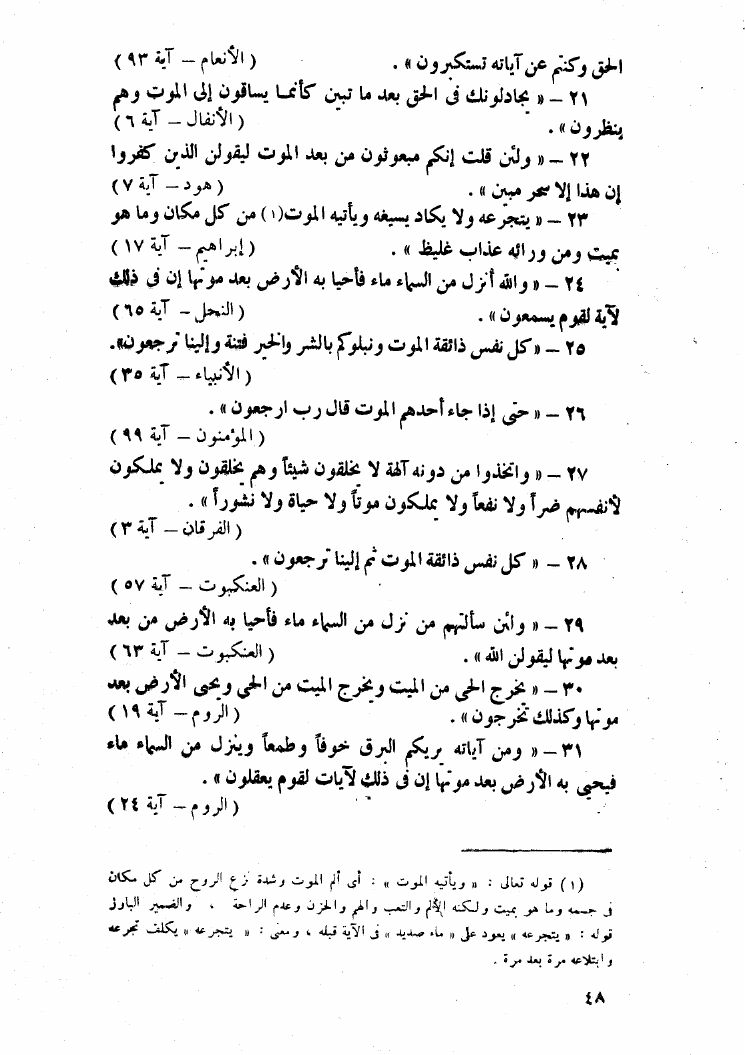 الحق وكنتم عن آياته تستكبرون » . ( الأنعام – آية ٩٣ )
٢١ – « يجادلونك فى الحق بعد ما تبين كأنما يساقون إلى الموت وهم
ينظرون » . ( الأنفال – آية ٦ )
٢٢ – « ولئن قلت إنكم مبعوثون من بعد الموت ليقولن الذين كفروا
إن هذا إلا سحر مبين » . ( هود – آية ٧ )
٢٣ – « يتجرعه ولا يكاد يسيغه ويأتيه الموت(١) من كل مكان وما هو
بميت ومن ورائه عذاب غليظ » . ( إبراهيم – آية ١٧ )
٢٤ – « والله أنزل من السماء ماء فأحيا به الأرض بعد موتها إن فى ذلك
لآية لقوم يسمعون » . ( النحل – آية ٦٥ )
٢٥ – «كل نفس ذائقة الموت ونبلوكم بالشر والخير فتنة وإلينا ترجعون».
( الأنبياء – آية ٣٥ )
٢٦ – « حتى إذا جاء أحدهم الموت قال رب ارجعون » .
( المؤمنون – آية ٩٩ )
٢٧ – « واتخذوا من دونه آلهة لا يخلقون شيئاً وهم يخلقون ولا يملكون
لأنفسهم ضراً ولا نفعاً ولا يملكون موتاً ولا حياة ولا نشوراً » .
( الفرقان – آية ٣ )
٢٨ – « كل نفس ذائقة الموت ثم إلينا ترجعون » .
( العنكبوت – آية ٥٧ )
٢٩ – « ولئن سألتهم من نزل من السماء ماء فأحيا به الأرض من بعد
بعد موتها ليقولن الله » . ( العنكبوت – آية ٦٣ )
٣٠ – « يخرج الحى من الميت ويخرج الميت من الحى ويحيى الأرض بعد
موتها وكذلك تخرجون » . ( الروم – آية ١٩ )
٣١ – « ومن آياته يريكم البرق خوفاً وطمعاً وينزل من السماء ماء
فيحيى به الأرض بعد موتها إن فى ذلك لآيات لقوم يعقلون » .
( الروم – آية ٢٤ )
(١) قوله تعالى : « ويأتيه الموت » : أى ألم الموت وشدة نزع الروح من كل مكان
فى جسمه وما هو بميت ولكنه الألم والتعب والهم والحزن وعدم الراحة ، والضمير البارز
قوله : « يتجرعه » يعود على « ماء صديد » فى الآية قبله ، ومعنى : « يتجرعه » يكلف تجرعه
وابتلاعه مرة بعد مرة .
٤٨